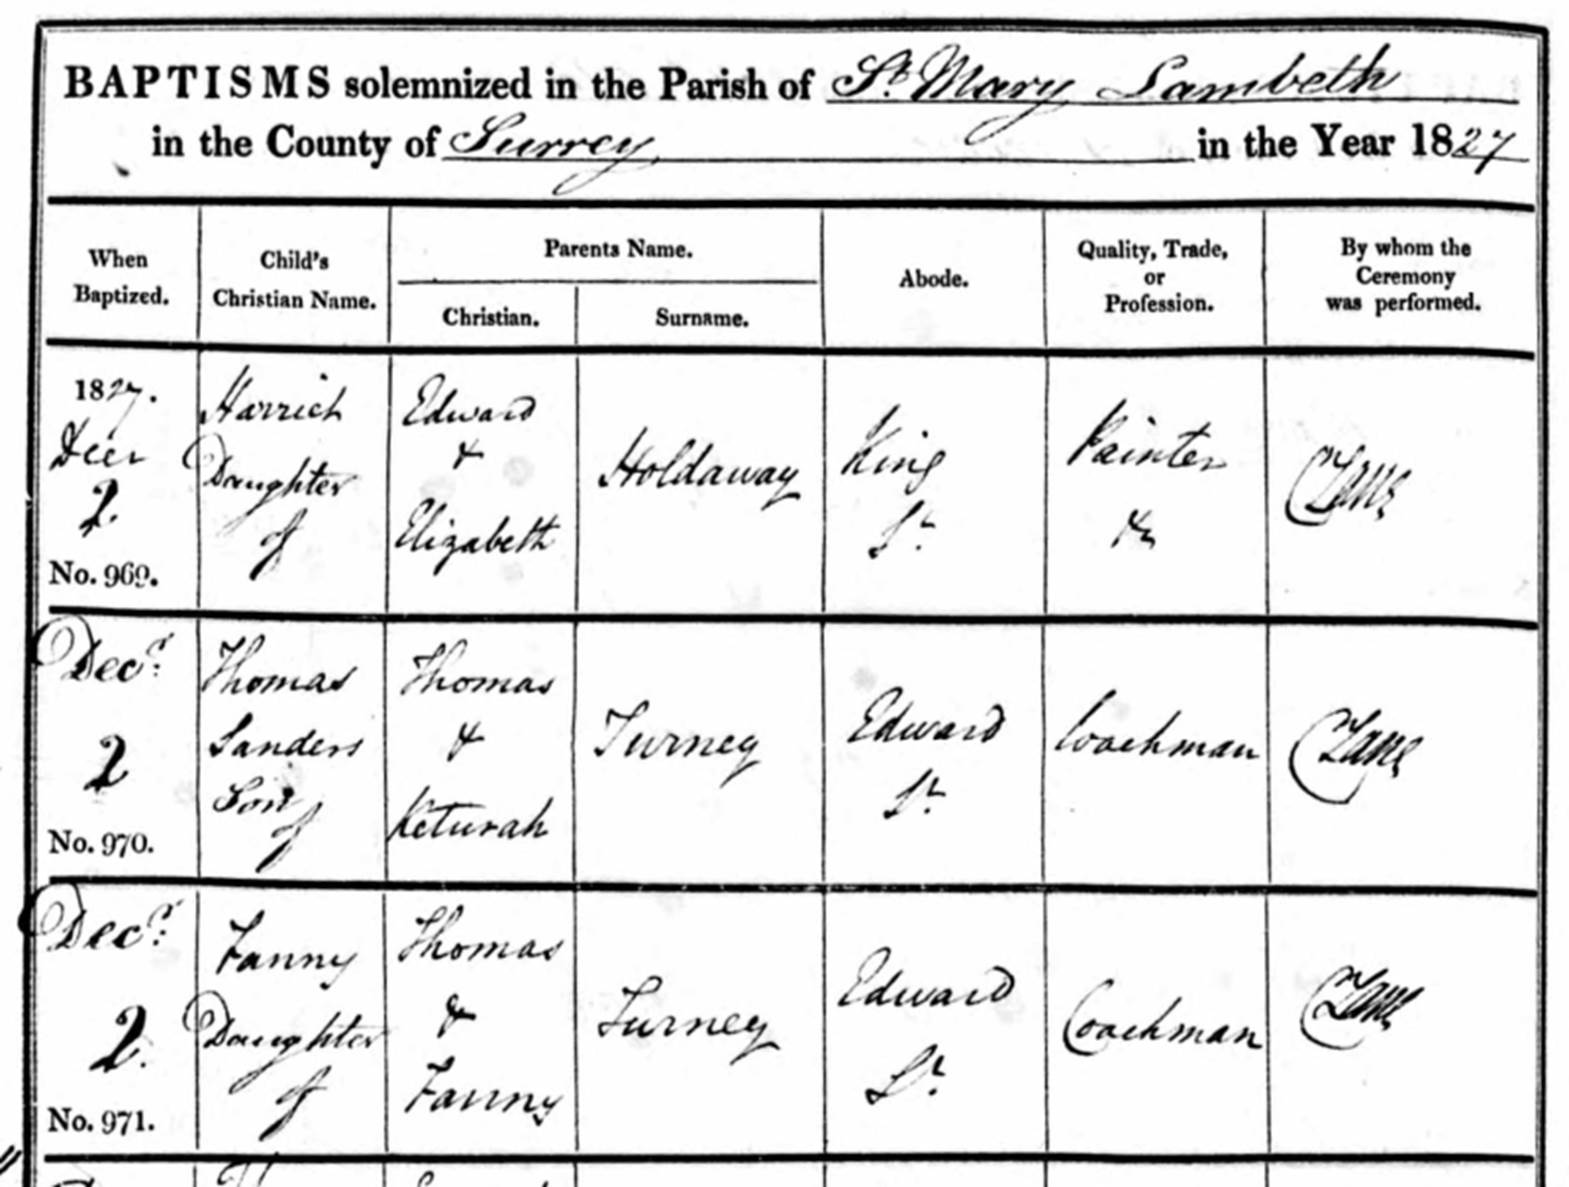 BAPTISMS solemnized in the Parish of St. Mary Lambeth
in the County of Surrey in the Year 1827
When Baptized.
Child's Christian Name.
Parents Name.
Christian.
Surname.
Abode.
Quality, Trade, or Profession.
By whom the Ceremony was performed.
1827.
Decr
2.
No. 969.
Harriet
Daughter
of
Edward
&
Elizabeth
Holdaway
King
St.
Painter
&c
Decr.
2
No. 970.
Thomas
Sanders
Son
of
Thomas
&
Keturah
Turney
Edward
St.
Coachman
Decr.
2.
No. 971.
Fanny
Daughter
of
Thomas
&
Fanny
Turney
Edward
St.
Coachman